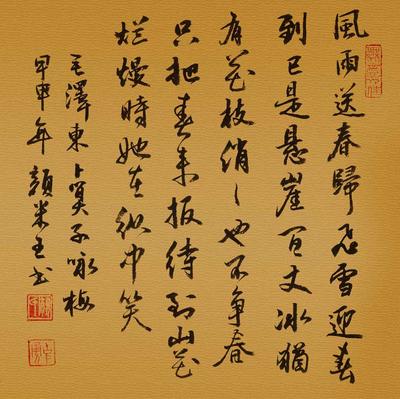 風雨送春歸飞雪迎春
到已是悬崖百丈冰猶
有花枝俏〻也不争春
只把春来报待到山花
烂熳時她在丛中笑
毛澤東卜算子咏梅
甲申年顏米王书